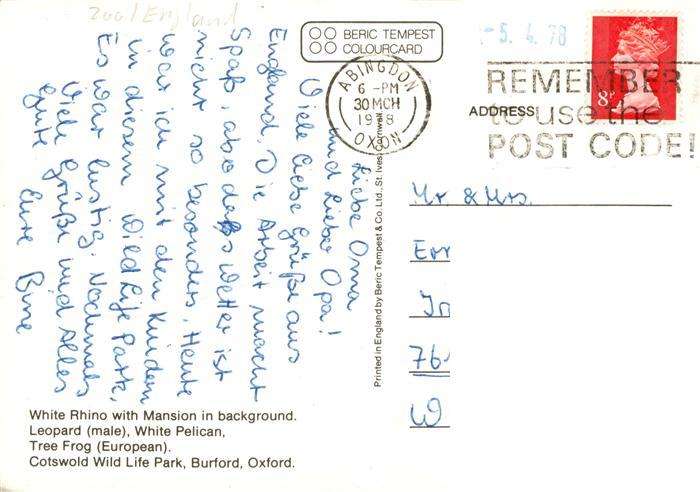 Zool England
BERIC TEMPEST
COLOURCARD
ABINGDON
6 -PM
30 MCH
1978
OXON
-5. 4. 78
8P
REMEMBER
to use the
POST CODE!
ADDRESS
Liebe Oma
und Lieber Opa!
Viele liebe Grüße aus
England. Die Arbeit macht
Spaß, aber daß Wetter ist
nicht so besonders. Heute
war ich mit den Kindern
in diesem Wild Life Park.
Es war lustig. Nochmals
Viele Grüße und Alles
Gute Eure
Printed in England by Beric Tempest & Co. Ltd., St. Ives, Cornwall
Mr & Mrs.
Err
In
76
W
White Rhino with Mansion in background.
Leopard (male), White Pelican,
Tree Frog (European).
Cotswold Wild Life Park, Burford, Oxford.